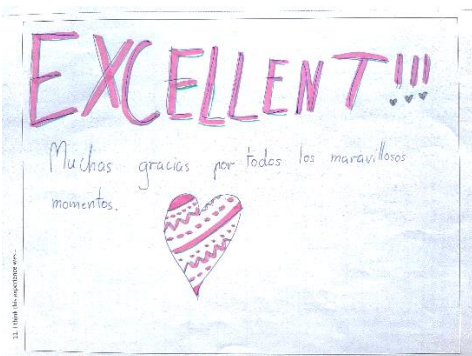 EXCELLENT!!!
Muchas gracias por todos los maravillosos
momentos.
11. I think this experience was...